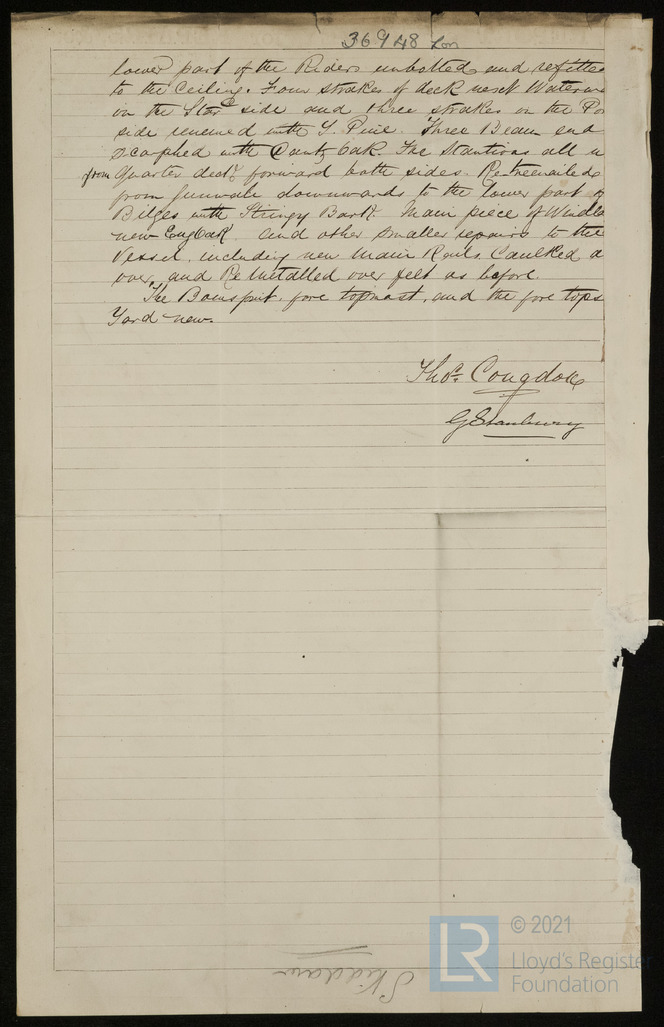 36948 Lon
lower part of the Riders unbolted and refitte
to the Ceiling. Four strakes of deck next Waterw
in the Star^d side and three strakes on the Po
side renewed with Y. Pine. Three Beam end
scarphed with Dantz Oak The Stantions all n
from Quarter deck forward both sides. Retreenailed
from gunwale downwards to the lower part of
Bilges with Stringy Bark. Main piece of Windla
new Eng Oak and other smaller repairs to the
Vessel, including new Main Rails. Caulked a
over, and Remetalled over felt as before.
The Bowsprit, fore topmast, and the fore tops
Yard new.
Tho^s. Congdon
G Stanbury
Skiddaw
LR
© 2021
Lloyd's Register
Foundation